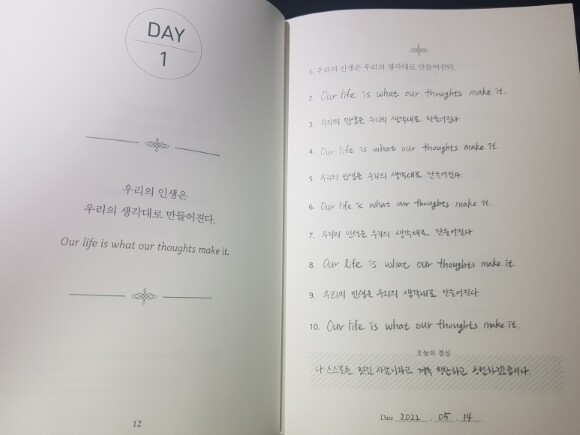 DAY
1
우리의 인생은
우리의 생각대로 만들어진다.
Our life is what our thoughts make it.
12
1. 우리의 인생은 우리의 생각대로 만들어진다.
2. Our life is what our thoughts make it.
3. 우리의 인생은 우리의 생각대로 만들어진다
4. Our life is what our thoughts make it.
5. 우리의 인생은 우리의 생각대로 만들어진다.
6. Our life is what our thoughts make it.
7. 우리의 인생은 우리의 생각대로 만들어진다
8. Our life is what our thoughts make it
9. 우리의 인생은 우리의 생각대로 만들어진다
10. Our life is what our thoughts make it.
오늘의 결심
나 스스로를 멋진 사람이라고 계속 칭찬하고 응원하겠습니다
Date 2022 . 05 . 14 .